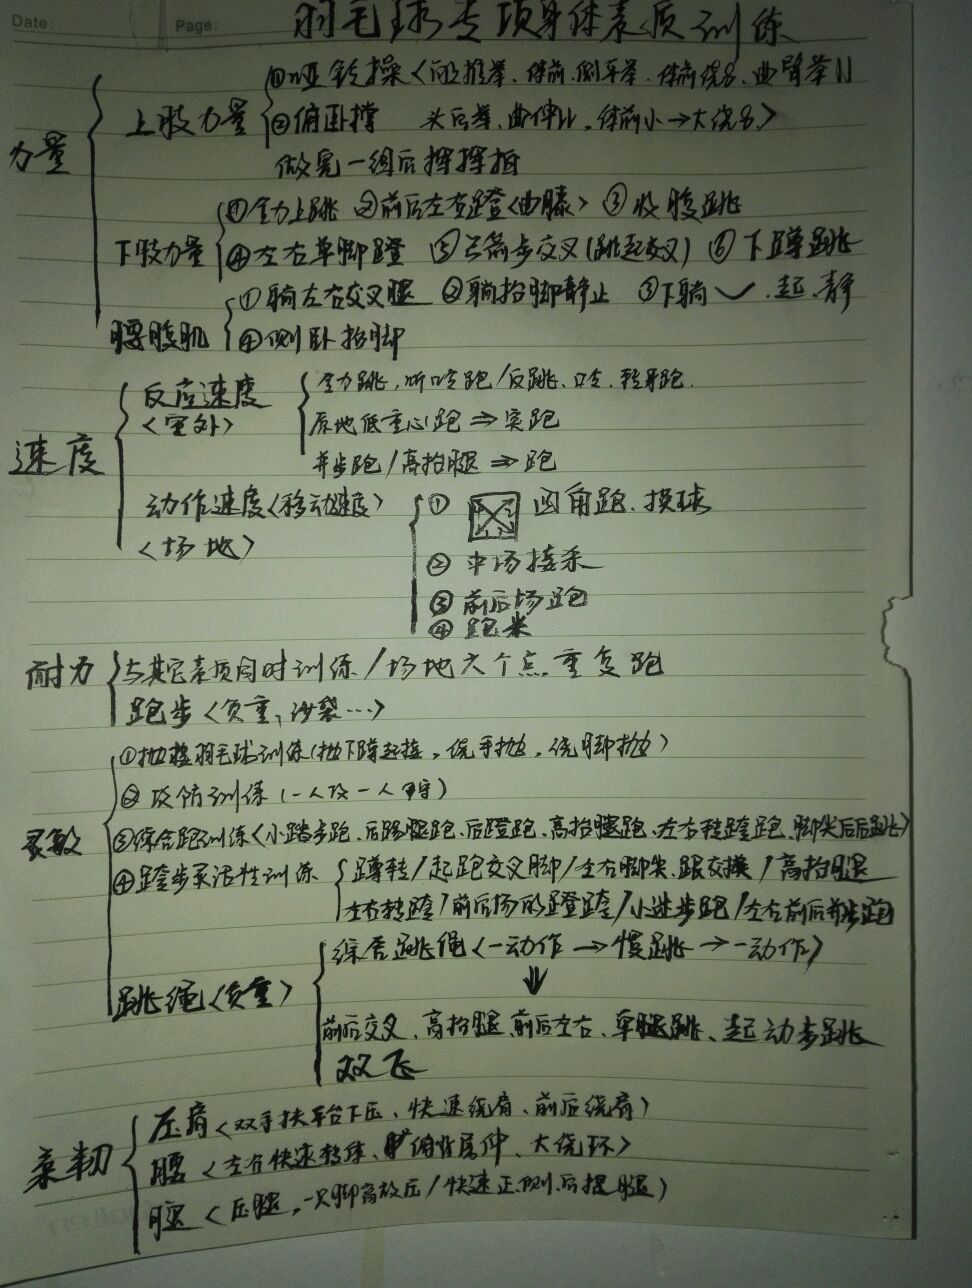 Date: Page:
羽毛球专项身体素质训练
力量
上肢力量
①哑铃操<向上推举、体前、侧平举、体前绕8、曲臂举11
②俯卧撑 头后举、曲伸11、体前小→大绕8>
做完一组后挥挥拍
下肢力量
①全力上跳 ②前后左右蹬<曲膝> ③收腹跳
④左右单脚蹬 ⑤弓箭步交叉(跳起交叉) ⑥下蹲跳
腰腹肌
①躺左右交叉腿 ②躺抬脚静止 ③下躺 起、静
④侧卧抬脚
速度
反应速度
<室外>
全力跳,听口令跑/反跳、口令、转身跑.
原地低重心跑⇒实跑
并步跑/高抬腿⇒跑
动作速度<移动速度>
<场地>
① 四角跑、摸球
② 中场接杀
③ 前后场跑
④ 跑米
耐力
与其它素质同时训练/场地六个点重复跑
跑步<负重,沙袋…>
灵敏
①抛接羽毛球训练(抛下蹲起接,绕手抛,绕脚抛)
②攻防训练(一人攻一人守)
③综合跑训练<小踏步跑、后踢腿跑、后蹬跑、高抬腿跑、左右转跨跑、脚尖后后跳>
④跨步灵活性训练
蹲转/起跑交叉脚/左右脚尖、跟交换/高抬腿
左右转跨/前后场的蹬跨/小进步跑/左右前后并步跑
跳绳<负重>
综合跳绳<一动作→慢跳→一动作>
⇓
前后交叉、高抬腿、前后左右、单腿跳、起动步跳
双飞
柔韧
压肩<双手扶平台下压、快速绕肩、前后绕肩>
腰<左右快速转体、俯背屈伸、大绕环>
腿<压腿,一只脚高放压/快速正、侧、后摆腿>